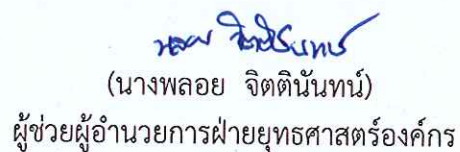 พลอย จิตตินันทน์
(นางพลอย จิตตินันทน์)
ผู้ช่วยผู้อำนวยการฝ่ายยุทธศาสตร์องค์กร